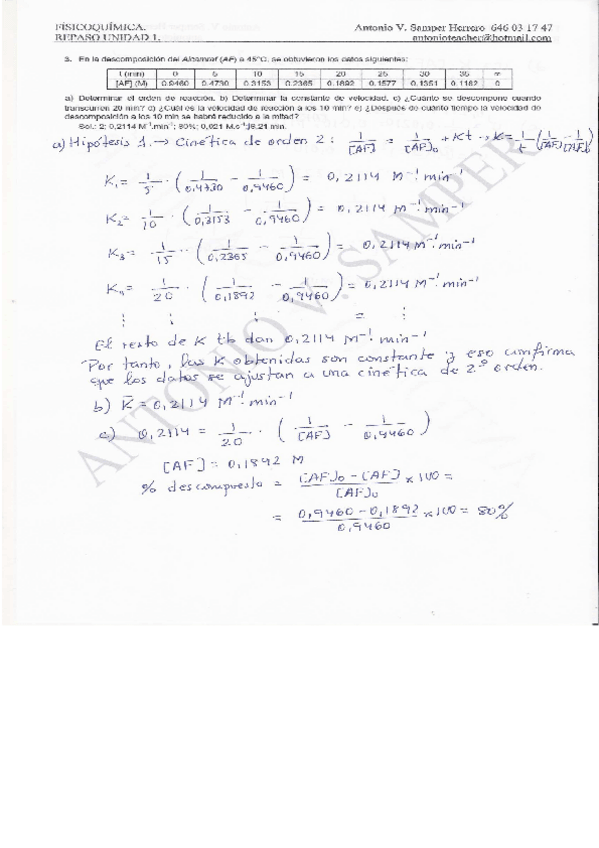 FÍSICOQUÍMICA. Antonio V. Samper Herrero 646 03 17 47
REPASO UNIDAD 1. antonioteacher@hotmail.com
3. En la descomposición del Alcamraf (AF) a 45°C, se obtuvieron los datos siguientes:
t (min) 0 5 10 15 20 25 30 35 ∞
[AF] (M) 0.9460 0.4730 0.3153 0.2365 0.1892 0.1577 0.1351 0.1182 0
a) Determinar el orden de reacción. b) Determinar la constante de velocidad. c) ¿Cuánto se descompone cuando
transcurren 20 min? d) ¿Cuál es la velocidad de reacción a los 10 min? e) ¿Después de cuánto tiempo la velocidad de
descomposición a los 10 min se habrá reducido a la mitad?
Sol.: 2; 0,2114 M⁻¹.min⁻¹; 80%; 0,021 M.s⁻¹; 6,21 min.
a) Hipótesis 1. → Cinética de orden 2 : 1/[AF] = 1/[AF]₀ + Kt → K = 1/t (1/[AF] - 1/[AF]₀)
K₁ = 1/5 · (1/0,4730 - 1/0,9460) = 0,2114 M⁻¹ min⁻¹
K₂ = 1/10 · (1/0,3153 - 1/0,9460) = 0,2114 M⁻¹ min⁻¹
K₃ = 1/15 · (1/0,2365 - 1/0,9460) = 0,2114 M⁻¹ min⁻¹
K₄ = 1/20 · (1/0,1892 - 1/0,9460) = 0,2114 M⁻¹ min⁻¹
⋮ ⋮ ⋮ = ⋮
El resto de K tb dan 0,2114 M⁻¹ min⁻¹
Por tanto, las K obtenidas son constante y eso confirma
que los datos se ajustan a una cinética de 2º orden.
b) K̄ = 0,2114 M⁻¹ min⁻¹
c) 0,2114 = 1/20 · (1/[AF] - 1/0,9460)
[AF] = 0,1892 M
% descompuesto = ([AF]₀ - [AF])/[AF]₀ × 100 =
= (0,9460 - 0,1892)/0,9460 × 100 = 80%
ANTONIO V. SAMPER